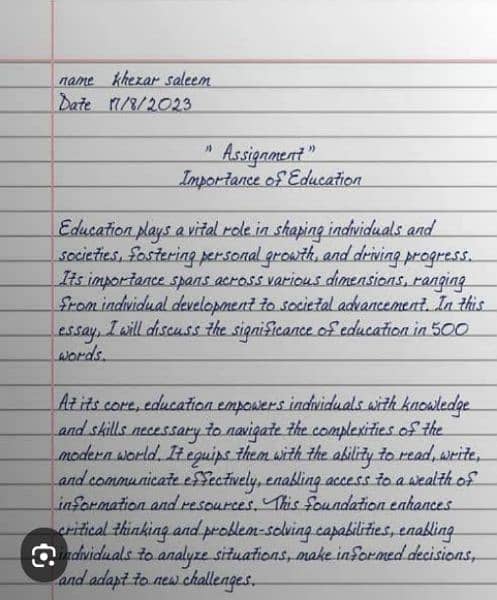 name Khezar saleem
Date 17/8/2023
" Assignment"
Importance of Education
Education plays a vital role in shaping individuals and
societies, fostering personal growth, and driving progress.
Its importance spans across various dimensions, ranging
from individual development to societal advancement. In this
essay, I will discuss the significance of education in 500
words.
At its core, education empowers individuals with knowledge
and skills necessary to navigate the complexities of the
modern world. It equips them with the ability to read, write,
and communicate effectively, enabling access to a wealth of
information and resources. This foundation enhances
critical thinking and problem-solving capabilities, enabling
individuals to analyze situations, make informed decisions,
and adapt to new challenges.